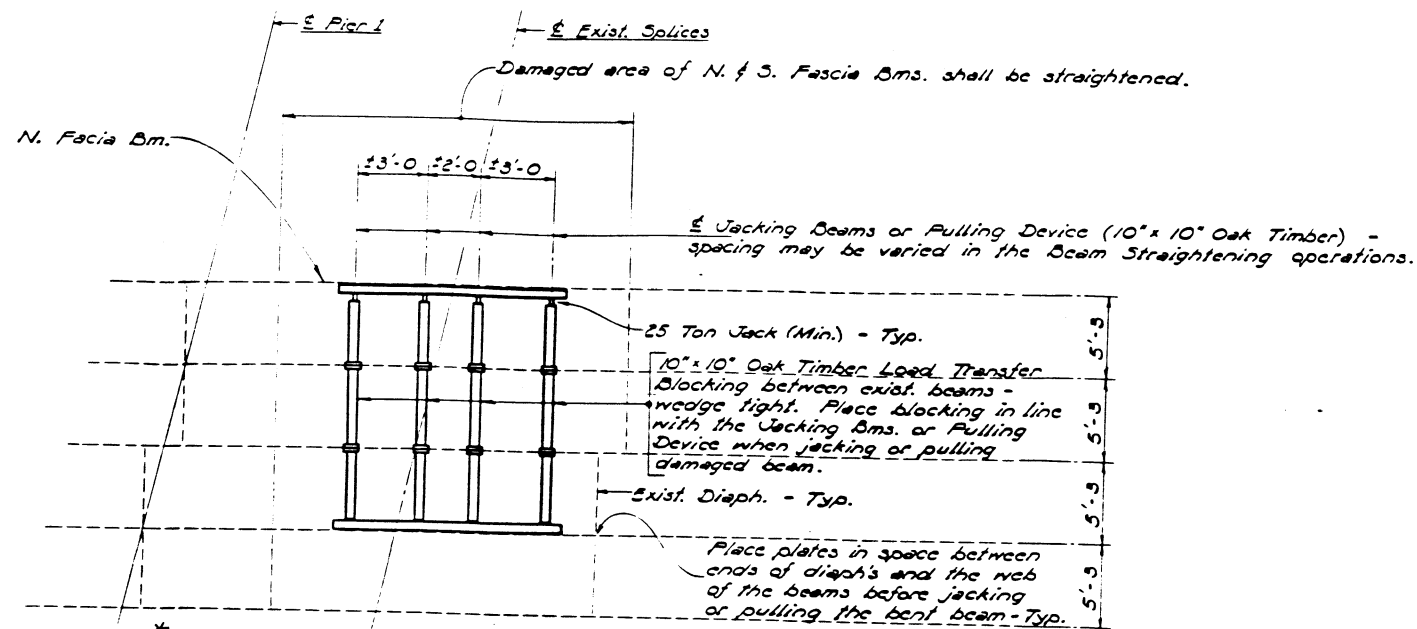 ℄ Pier 1
℄ Exist. Splices
Damaged area of N. & S. Fascia Bms. shall be straightened.
N. Facia Bm.
±3'-0
±2'-0
±3'-0
℄ Jacking Beams or Pulling Device (10" x 10" Oak Timber) -
spacing may be varied in the Beam Straightening operations.
25 Ton Jack (Min.) - Typ.
10" x 10" Oak Timber Load Transfer
Blocking between exist. beams -
wedge tight. Place blocking in line
with the Jacking Bms. or Pulling
Device when jacking or pulling
damaged beam.
Exist. Diaph. - Typ.
Place plates in space between
ends of diaph's and the web
of the beams before jacking
or pulling the bent beam - Typ.
5'-3
5'-3
5'-3
5'-3